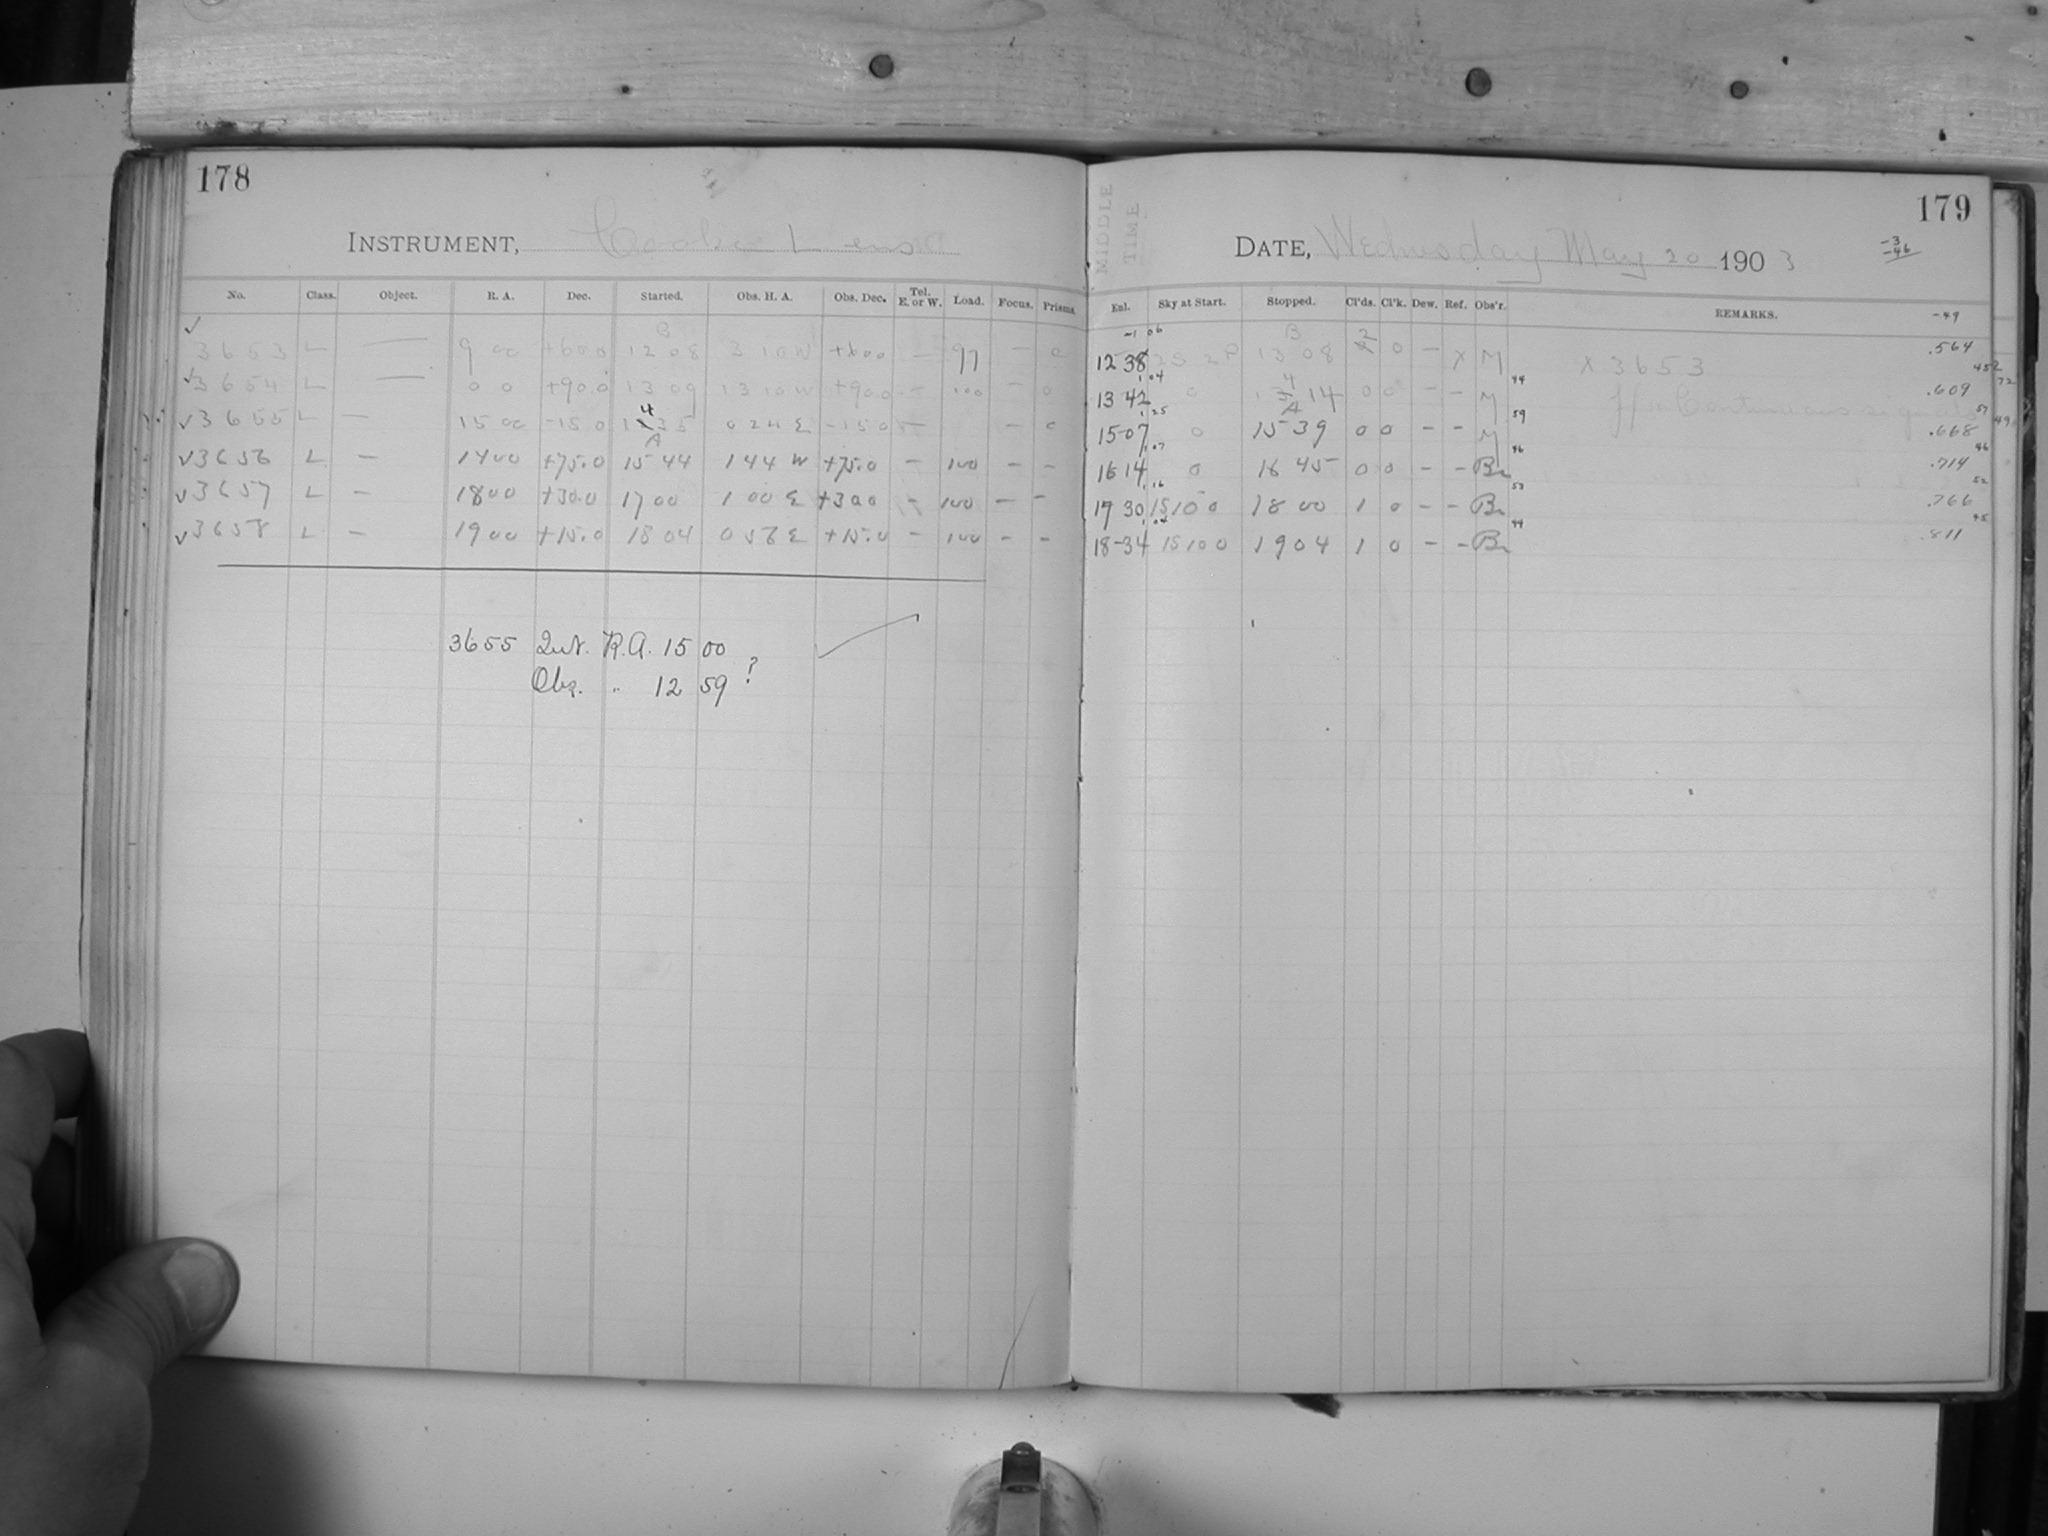 178
INSTRUMENT, Cooke Lens
No. Class. Object. R. A. Dec. Started. Obs. H. A. Obs. Dec. Tel. E. or W. Load. Focus. Prisms.
B
✓ 3653 L — 9 00 +60.0 12 08 3 10 W +60.0 — 97 — 0
✓ 3654 L — 0 0 +90.0 13 09 13 10 W +90.0 — 100 — 0
4
✓ 3655 L — 15 00 -15 0 1 35 0 24 E -15 0 — — 0
A
✓ 3656 L — 14 00 +75.0 15 44 1 44 W +75.0 — 100 — —
✓ 3657 L — 18 00 +30.0 17 00 1 00 E +30.0 — 100 — —
✓ 3658 L — 19 00 +15.0 18 04 0 58 E +15.0 — 100 — —
3655 Int. R.A. 15 00
Obs. " 12 59 ?
179
MIDDLE
TIME
DATE, Wednesday May 20 1903
-3
-46
Enl. Sky at Start. Stopped. Cl'ds. Cl'k. Dew. Ref. Obs'r. REMARKS. -49
-1 06 B 2
12 38 2S 2P 13 08 0 — X M X 3653 .564
1 04 4 44 452
13 42 0 1 14 0 0 — — M .609 72
1 25 A 59 57
15-07 0 15 39 0 0 — — M .668 49
1 07 46 46
16 14 0 16 45 0 0 — — Br .714
1 16 53 52
17 30 15100 18 00 1 0 — — Br .766
1 04 44 45
18-34 15100 19 04 1 0 — — Br .811